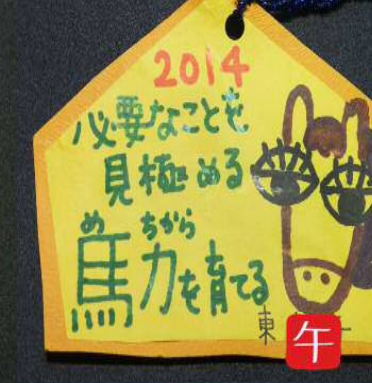 2014
必要なことを
見極める
め ぢから
馬力を育てる
東
午